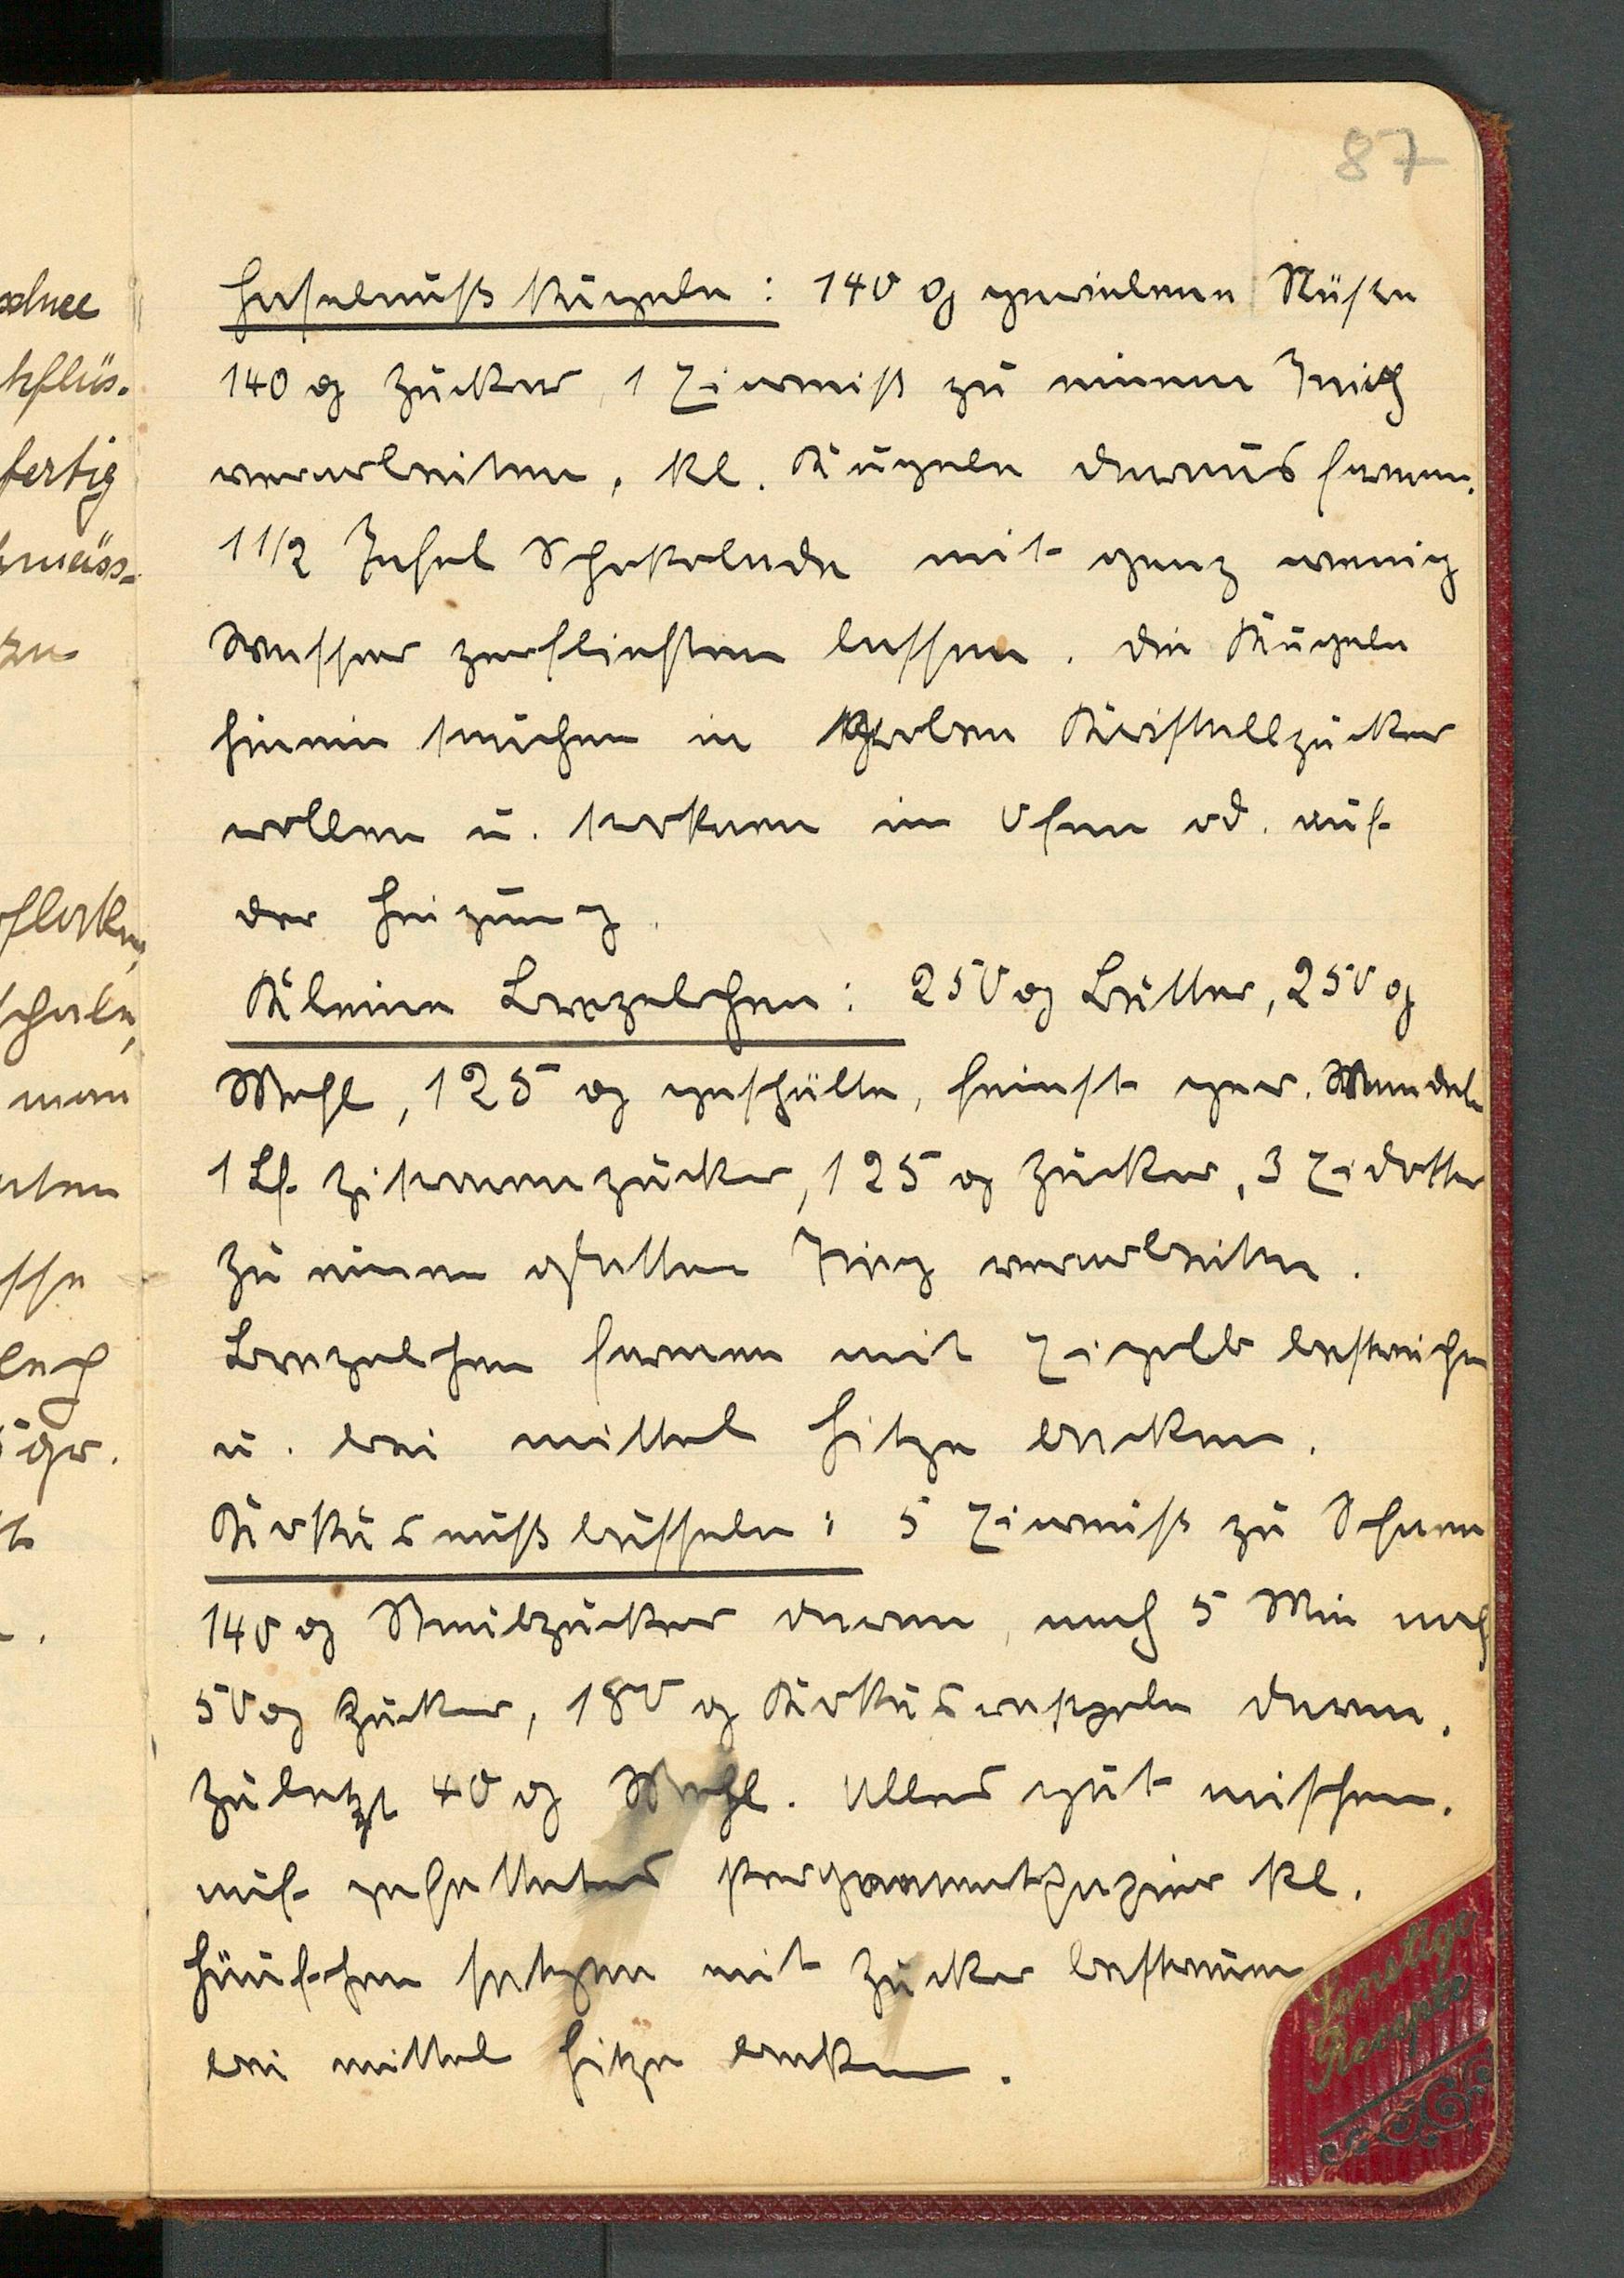 87
Haselnuß Kugeln: 140 g geriebene Nüße
140 g Zucker, 1 Eiweiß zu einem Teig
verarbeiten, kl. Kugeln daraus formen.
1 1/2 Tafel Schokolade mit ganz wenig
Wasser zerfließen lassen. die Kugeln
hinein tauchen in groben Kristallzucker
rollen u. troknen im Ofen od. auf
der Heizung.
Kleine Brezelchen: 250 g Butter, 250 g
Mehl, 125 g geschälte, feinst ger. Mandeln
1 Lf. Zitronenzucker, 125 g Zucker, 3 Eidotter
zu einem glatten Teig verarbeiten.
Brezelchen formen mit Eigelb bestreichen
u. bei mittel Hitze backen.
Kokusnußbusseln: 5 Eiweiß zu Schnee
140 g Staubzucker daran, nach 5 Min noch
50 g Zucker, 180 g Kokusraspeln daran.
zuletzt 40 g Mehl. Alles gut mischen.
auf gefettetes Pergamentpapier kl.
Häufchen setzen mit Zucker bestreuen
bei mittel Hitze backen.
Sonstige
Rezepte
schnee
fertig
zu
flocken,
schale,
man
gr.